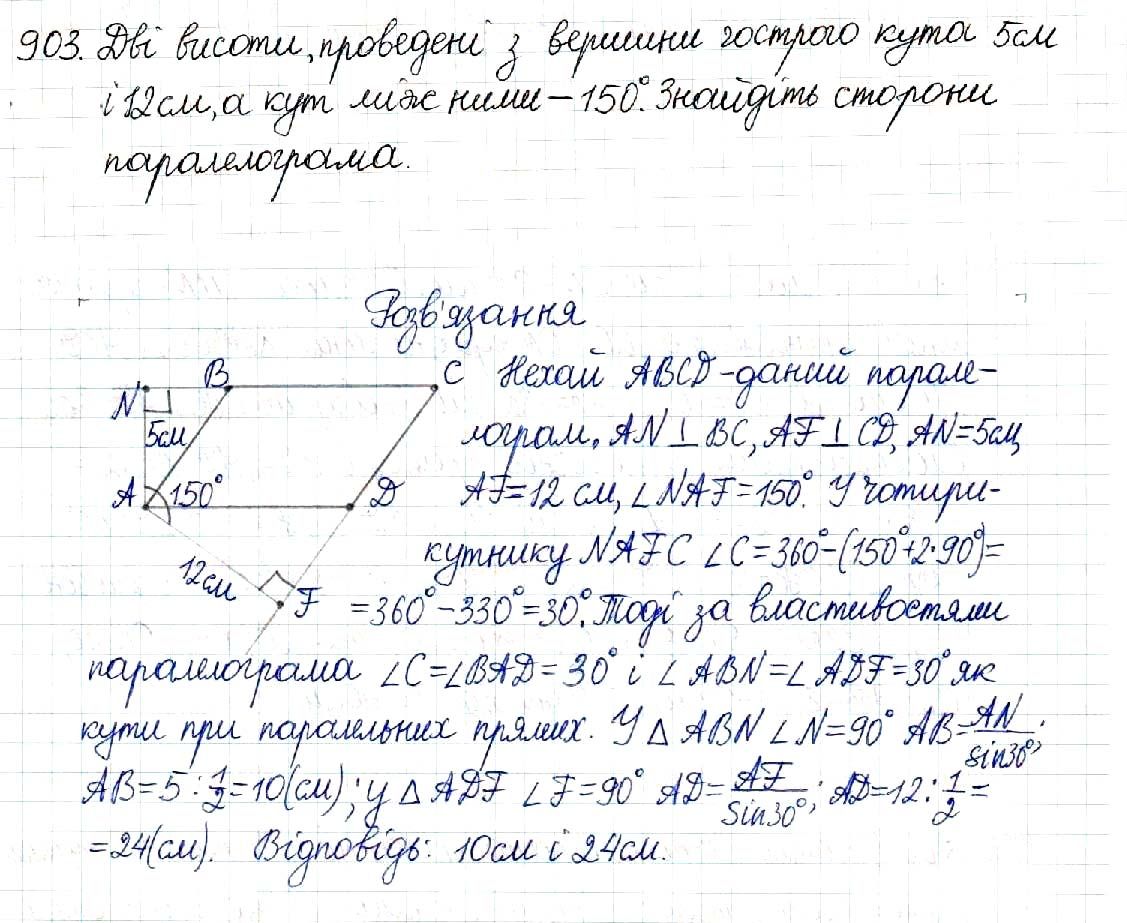 903. Дві висоти, проведені з вершини гострого кута 5см
і 12см, а кут між ними – 150°. Знайдіть сторони
паралелограма.
Розв'язання
N B C
5см
A 150° D
12см
F
Нехай ABCD – даний парале-
лограм, AN ⊥ BC, AF ⊥ CD, AN = 5см,
AF = 12 см, ∠NAF = 150°. У чотири-
кутнику NAFC ∠C = 360° – (150° + 2·90°) =
= 360° – 330° = 30°. Тоді за властивостями
паралелограма ∠C = ∠BAD = 30° і ∠ABN = ∠ADF = 30° як
кути при паралельних прямих. У △ ABN ∠N = 90° AB = AN/sin30°;
AB = 5 : 1/2 = 10(см); у △ ADF ∠F = 90° AD = AF/sin30°; AD = 12 : 1/2 =
= 24(см). Відповідь: 10см і 24см.